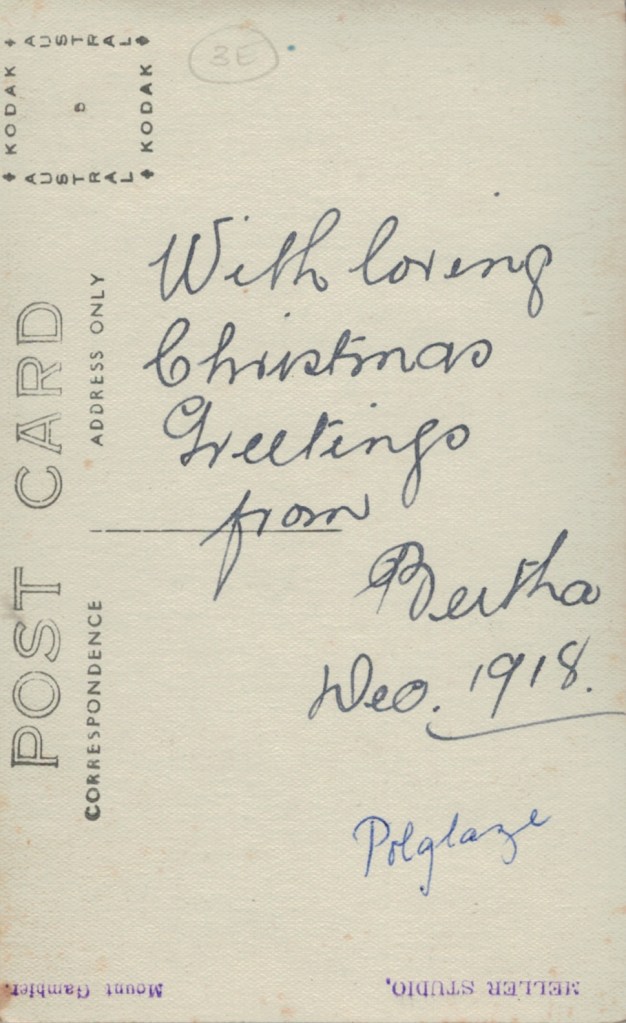 KODAK
AUSTRAL
KODAK
AUSTRAL
3E
POST CARD
ADDRESS ONLY
CORRESPONDENCE
With loving
Christmas
Greetings
from
Bertha
Dec. 1918.
Polglaze
MELLER STUDIO,
Mount Gambier.